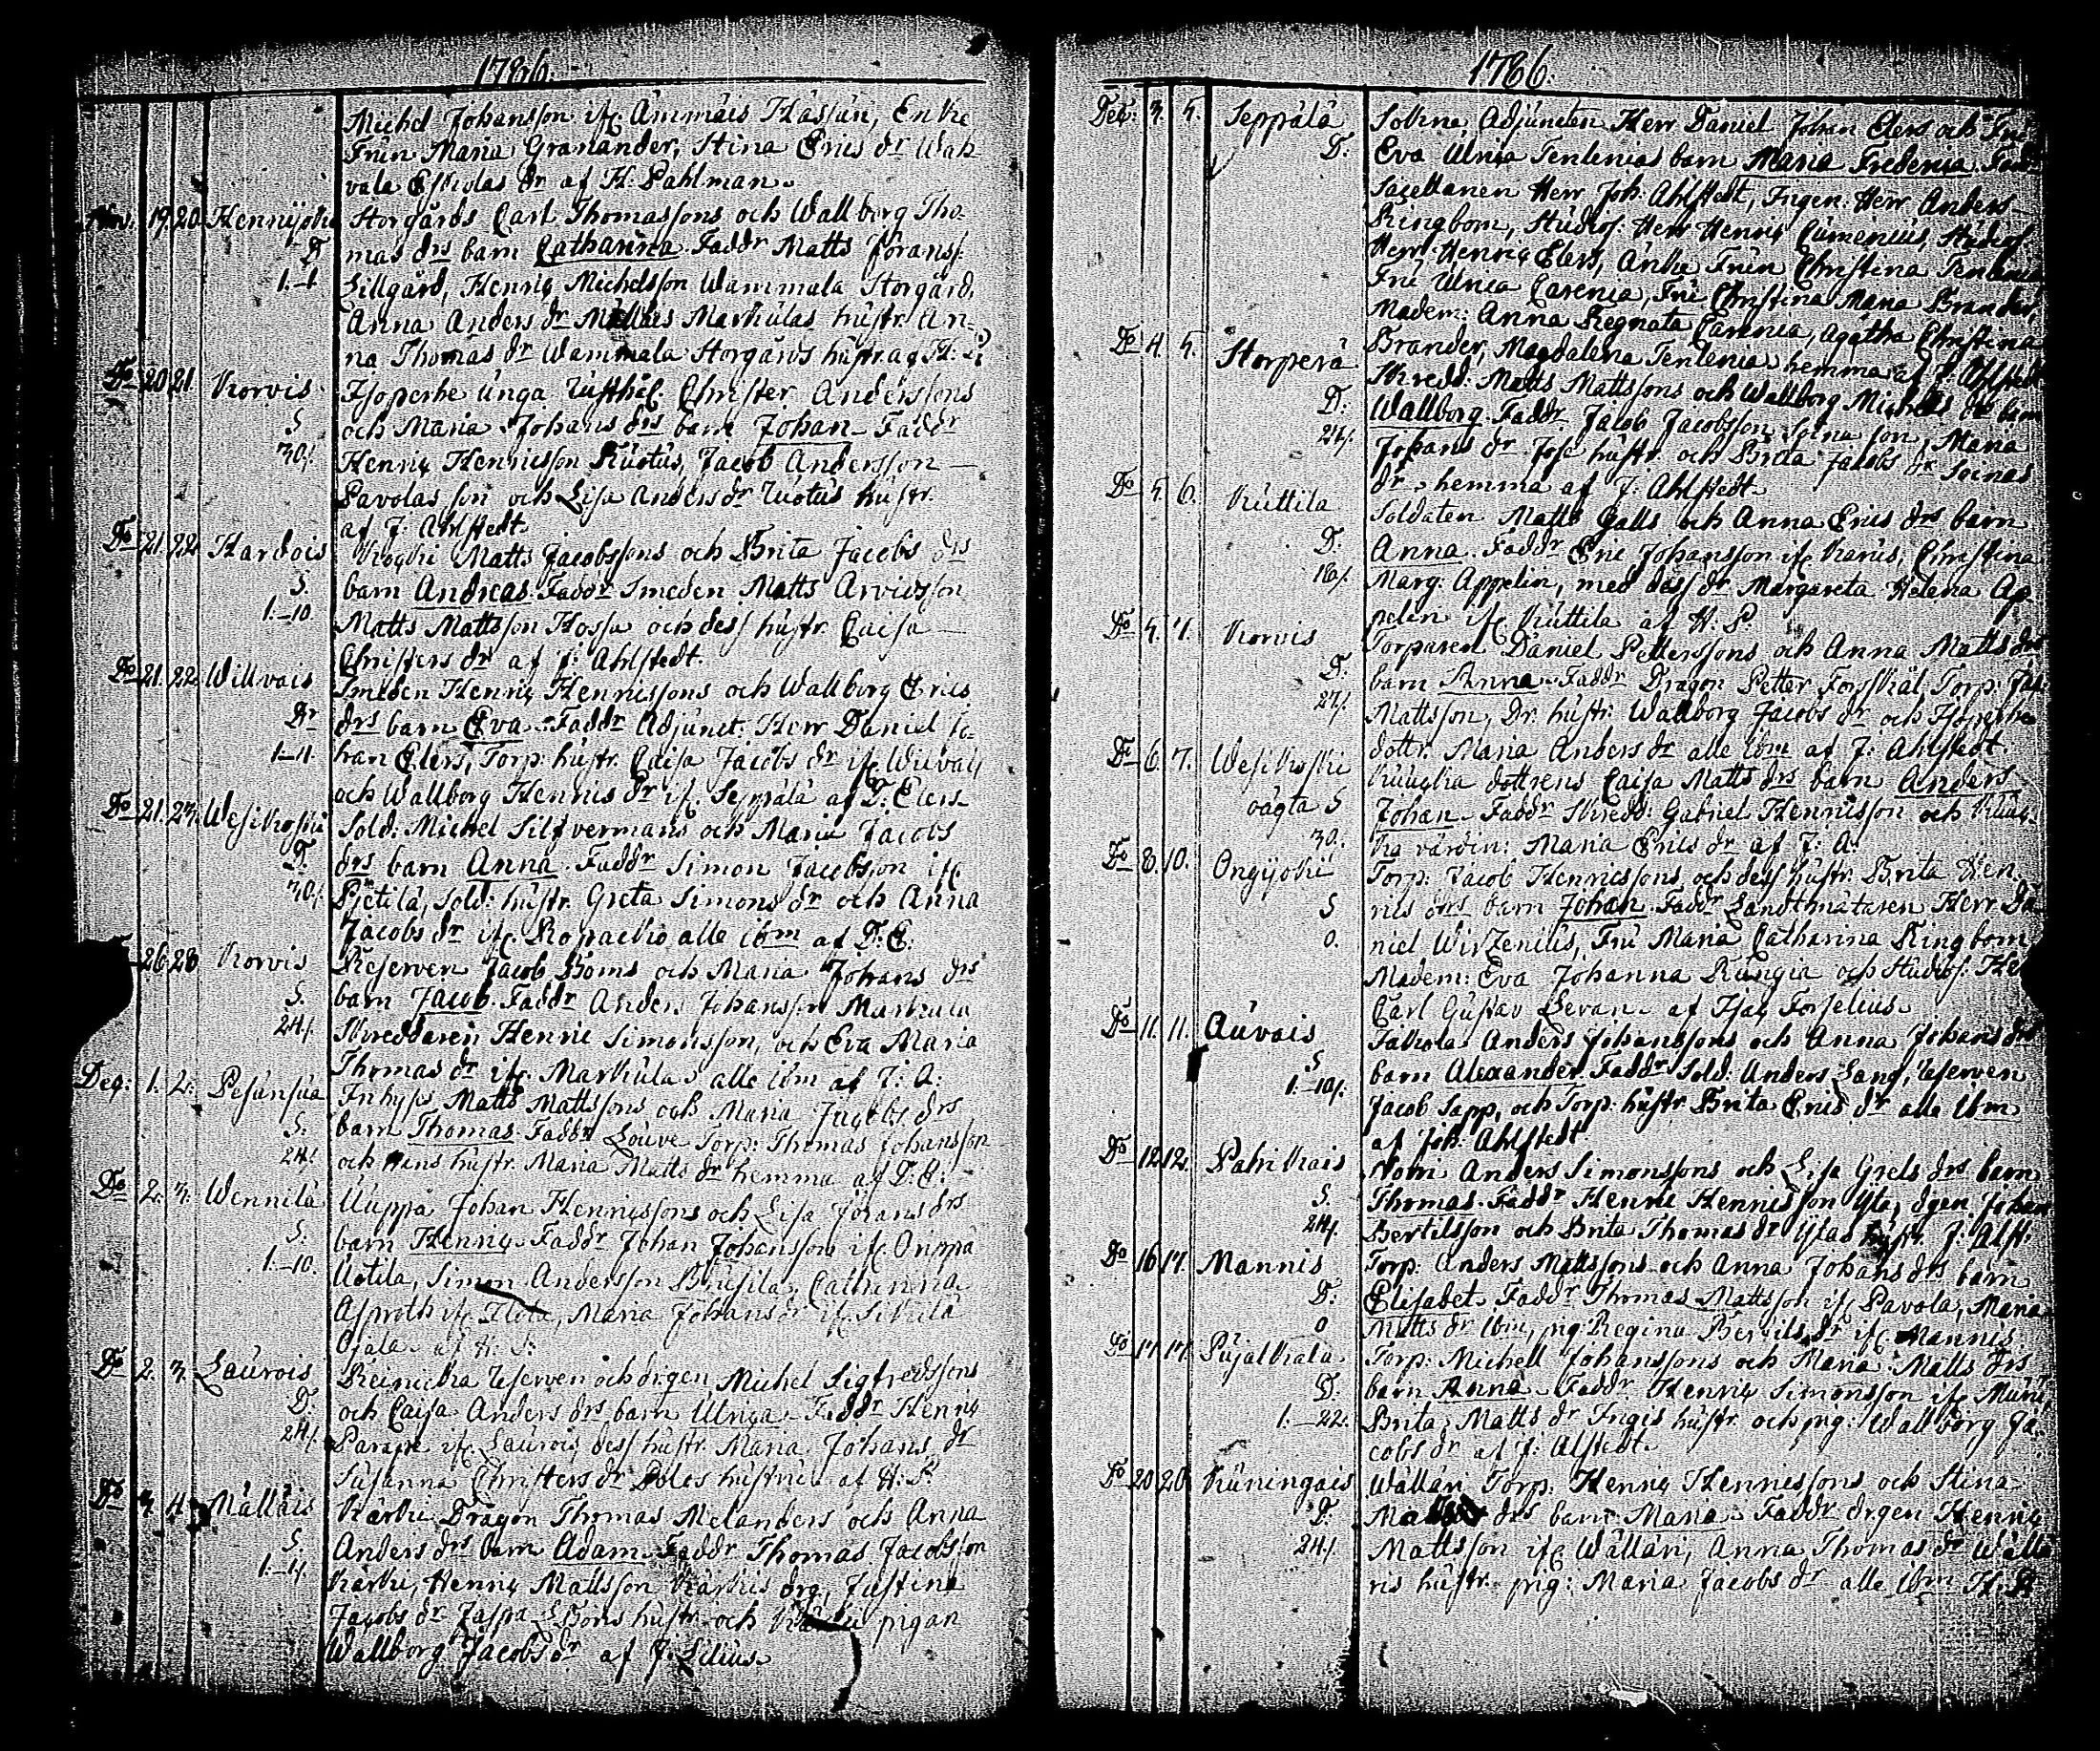 1786.
Michel Johansson if. Ammäis Hassuri, Enke
Frun Maria Granander, Stina Erics dr Wah
vala dr af H. Pahlman.
Nov. 19. 20. Hennijoki Storgårds Carl Thomassons och Wallborg Tho-
D mas drs barn Catharina. Faddr Matts Joransf:
1.-1 Lillgård, Henriç Michelsson Wammala Storgård,
Anna Anders dr Markulas hustr. An-
na Thomas dr Wammala Storgårds hustr. af H: P
Do 20 21. Korvis Isoperhe unga Christer Anderssons
S och Maria Johans drs barn Johan. Faddr
30/. Henriç Henricsson Ruotus, Jacob Andersson
Pavolas son och Lisa Anders dr hustr.
af J: Ahlstedt.
Do 21. 22 Hardois Matts Jacobssons och Brita Jacobs drs
S. barn Andreas. Faddr Smeden Matts Arvidsson
1.-10. Matts Mattsson Hossa och dess hustr. Caisa
Christers dr af J: Ahlstedt.
Do 21. 22. Willvais Smeden Henriç Henricssons och Wallborg Erics
Dr drs barn Eva. Faddr Adjunct: Herr Daniel Jo-
1.-11. han Elers, Torp: hustr. Caisa Jacobs dr if.
och Wallborg Henrics dr if. Seppälä af D: Elers.
Do 21. 23. Wesikoski Sold: Michel Silfvermans och Maria Jacobs
D. drs barn Anna. Faddr Simon Jacobsson if.
30/. Pietilä, Sold: hustr. Greta Simons dr och Anna
Jacobs dr if. alle ibm af D: E:
26 28 Korvis Reserven Jacob Boms och Maria Johans drs
S. barn Jacob. Faddr Anders Johansson Markula
24/. Skreddaren Henric Simonsson, och Eva Maria
Thomas dr if. Markula, alle ibm af J: A:
Dec: 1. 2. Pesunsua Inhyses Matts Mattssons och Maria Jacobs drs
S. barn Thomas. Faddr Louve Torp: Thomas Johansson
24/. och Hans hustr. Maria Matts dr hemma af D: E:
Do 2. 3. Wennilä Uuppa Johan Henricssons och Lisa Jörans drs
S. barn Henriç. Faddr Johan Johansson if.
1.-10. Uotila, Simon Andersson Catharina
Asproth if. Maria Johans dr if. Sikkilä
Ojala af H: P:
Do 2. 3. Laurois Reinickka Reserven och drgen Michel Sigfredssons
D: och Caisa Anders drs barn Ulrica. Faddr Henriç
24/. if. Laurois, dess hustr. Maria Johans dr
Susanna Christers dr Poles hustru af H: P.
Do 3. 4. Källäis Kärki Dragon Thomas Melanders och Anna
S. Anders drs barn Adam. Faddr Thomas Jacobsson
1.-11. Kärki, Henriç Mattsson Kärkis drg, Justina
Jacobs dr hustr. och pigan
Wallborg Jacobs dr af J: Lilius.
1786.
Dec: 3. 5. Seppälä Adjuncten Herr Daniel Johan Elers och Fru
D: Eva Ulrica Tenlenias barn Maria Fredenia. Fadd:
Sacellanen Herr Joh: Ahlstedt, Ingen: Herr Anders
Ringbom, Studios: Herr Henriç Cumenius, Studios:
Herr Henriç Elers, Änke Frun Christina Tenlenia
Fru Ulrica Carenia, Fru Christina Maria Brander,
Madem: Anna Regnata Carenia, Agatha Christina
Brander, Magdalena Tenlenia hemma af J: Ahlstedt
Do 4. 5. Storperä Skredd: Matts Mattssons och Wallborg Michels drs barn
D: Wallborg. Faddr Jacob Jacobsson Soina son, Maria
24/. Johans dr hustr. och Brita Jacobs dr Soinas
dr. hemma af J: Ahlstedt.
Do 5. 6. Kuttila Soldaten Matts Galls och Anna Erics drs barn
D: Anna. Faddr Eric Johansson if. Karus, Christina
16/. Marg: Appelin, med dess dr Margareta Helena Ap-
pelin if. Kuttila af H: P:
Do 5. 7. Korvis Torparen Daniel Petterssons och Anna Matts drs
D: barn Anna. Faddr Dragon Petter Forsskål, Torp:
27/. Mattsson, Dr: hustr. Wallborg Jacobs dr och Isoperhe
dottr. Maria Anders dr alle ibm af J: Ahlstedt.
Do 6. 7. Wesikoski dottrens Caisa Matts drs barn Anders
oägta S Johan. Faddr Skredd: Gabriel Henricsson och
30. värdin: Maria Erics dr af J: A:
Do 8. 10. Ongijoki Torp: Jacob Henricssons och dess hustr. Brita Hen-
S rics drs barn Johan. Faddr Landtmätaren Herr Da
0. niel Wirzenius, Fru Maria Catharina Ringbom
Madem: Eva Johanna Rungia och Studios: Her
Carl Gustav Levan. af Isaç Forselius.
Do 11. 11. Auvais Anders Johanssons och Anna Johans drs
S barn Alexander. Faddr Sold: Anders Lang, Reserven
1.-10/. Jacob Sapp, och Torp: hustr. Brita Erics dr alle ibm
af Joh: Ahlstedt.
Do 12 12. Pahikkais Nohri Anders Simonssons och Lisa Griels drs barn
S. Thomas. Faddr Henric Henricsson Yta, dgen Johan
24/. Bertilsson och Brita Thomas dr Ytas hustr. J: Alst:
Do 16 17. Mannis Torp: Anders Mattssons och Anna Johans drs barn
D: Elisabet. Faddr Thomas Mattsson if. Pavola, Maria
0 Matts dr ibm, pig: Regina Bertils dr if. Mannis.
Do 17 17. Pujalkala Torp: Michell Johanssons och Maria Matts drs
D. barn Anna. Faddr Henriç Simonsson if.
1.-22. Brita Matts dr Ingis hustr. och pig: Wallborg Ja-
cobs dr af J: Alstedt.
Do 20 20 Kuningais Wällari Torp: Henriç Henricssons och Stina
D: drs barn Maria. Faddr drgen Henriç
24/. Mattsson if. Wällari, Anna Thomas dr Wälla
ris hustr. pig: Maria Jacobs dr alle ibm H: P.